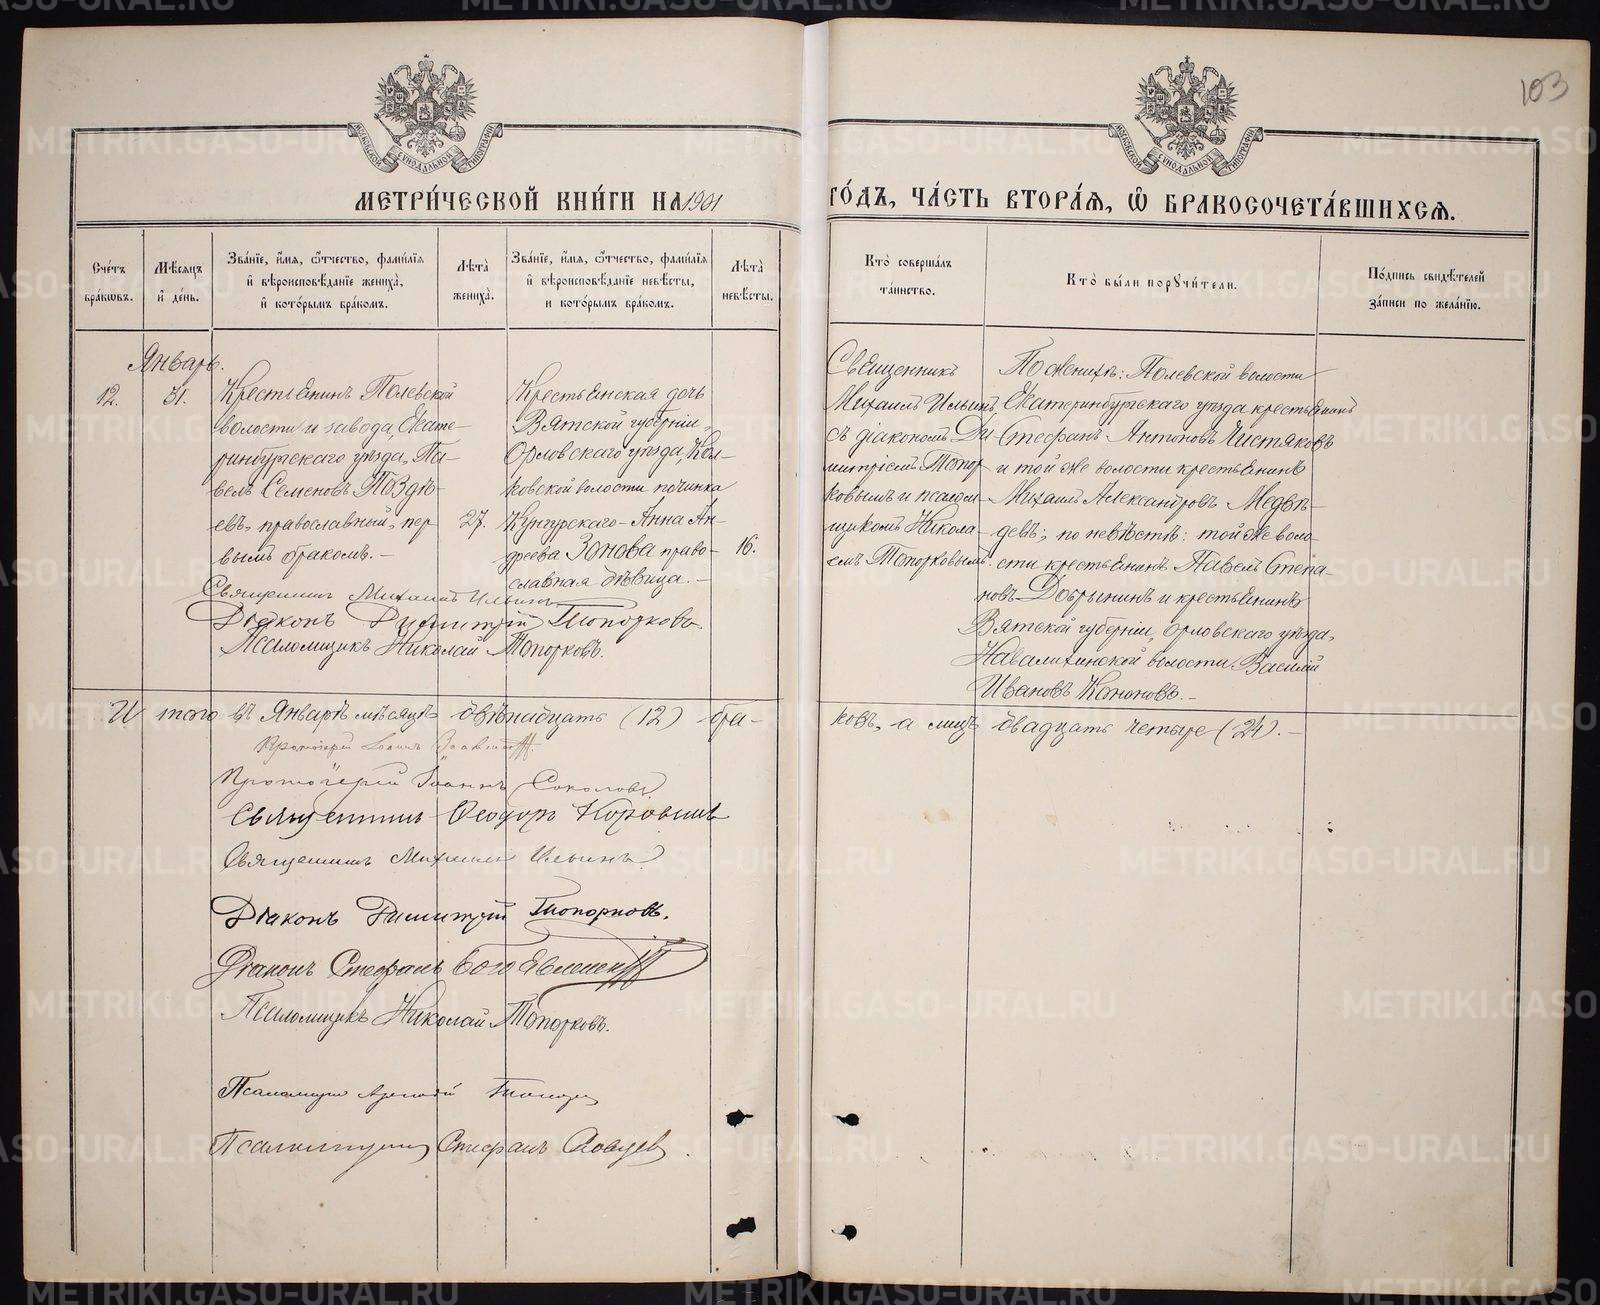 103
МЕТРИ́ЧЕСКОЙ КНИ́ГИ НА 1901 ГО́ДЪ, ЧА́СТЬ ВТОРА́Я, Ѡ҆ БРАКОСОЧЕТА́ВШИХСЯ.
Сче́тъ бра́ковъ.
Мѣ́сяцъ и҆ де́нь.
Зва́нїе, и҆́мя, ѻ҆́тчество, фами́лїя
и҆ вѣроисповѣ́данїе жениха̀,
и҆ кото́рымъ бра́комъ.
Лѣта̀ жениха̀.
Зва́нїе, и҆́мя, ѻ҆́тчество, фами́лїя
и҆ вѣроисповѣ́данїе невѣ́сты,
и кото́рымъ бра́комъ.
Лѣта̀ невѣ́сты.
Кто̀ соверша́лъ
та́инство.
Кто̀ бы́ли порꙋчи́тели.
По́дпись свидѣ́телей
за́писи по жела́нїю.
Январь.
12.
31.
Крестьянинъ Полевской
волости и завода, Екате-
ринбургскаго уѣзда, Па-
велъ Семеновъ Поздѣ-
евъ, православный, пер-
вымъ бракомъ.-
27.
Крестьянская дочь
Вятской губерніи,
Орловскаго уѣзда,
ковской волости починка
Кунгурскаго-Анна Ан-
дреева Зонова право-
славная дѣвица.-
16.
Священникъ
Михаилъ Ильинъ
съ діакономъ Ди
митріемъ Топор
ковымъ и псалом-
щикомъ Никола-
емъ Топорковымъ.
По женихѣ: Полевской волости
Екатеринбургскаго уѣзда крестьянинъ
Стефанъ Антоновъ Чистяковъ
и той же волости крестьянинъ
Михаилъ Александровъ Медвѣ-
девъ; по невѣстѣ: той же воло-
сти крестьянинъ Павелъ Степа-
новъ Добрынинъ и крестьянинъ
Вятской губерніи, Орловскаго уѣзда,
волости Василій
Ивановъ Кононовъ.-
Священникъ Михаилъ Ильинъ
Діаконъ Димитрій Топорковъ.
Псаломщикъ Николай Топорковъ.
Итого въ Январѣ мѣсяцѣ двѣнадцать (12) бра-
ковъ, а лицъ двадцать четыре (24).-
Протоіерей Іоаннъ
Протоіерей Іоаннъ Соколовъ
Священникъ Ѳеодоръ Коровинъ
Священникъ Михаилъ Ильинъ
Діаконъ Димитрій Топорковъ.
Діаконъ Стефанъ Богоявленскій
Псаломщикъ Николай Топорковъ.
Псаломщикъ
Псаломщикъ Стефанъ
METRIKI.GASO-URAL.RU